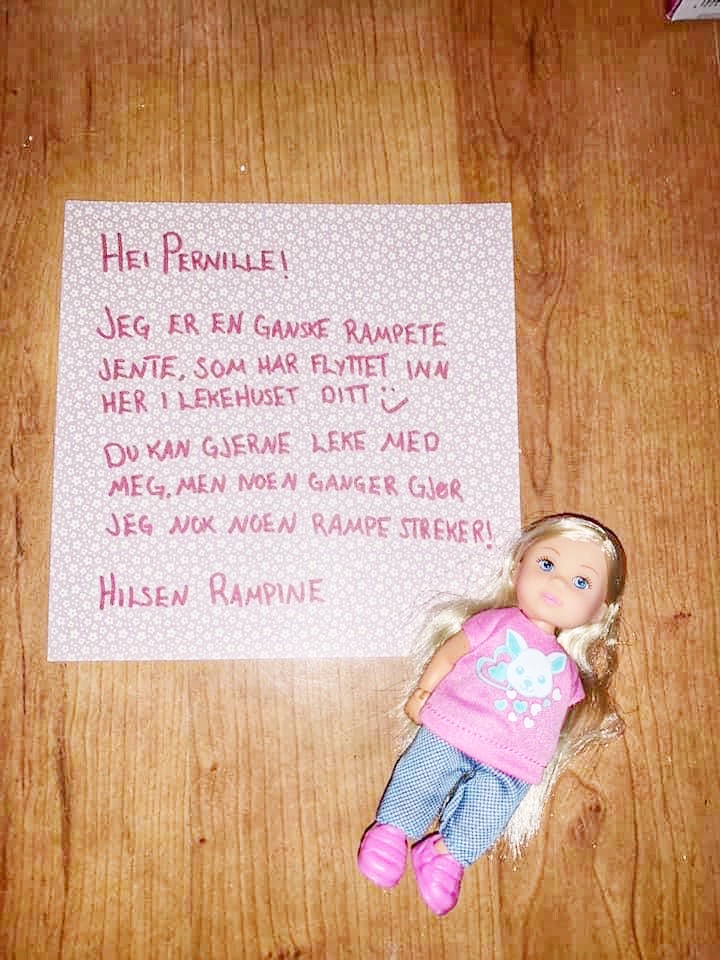 HEI PERNILLE!
JEG ER EN GANSKE RAMPETE
JENTE, SOM HAR FLYTTET INN
HER I LEKEHUSET DITT :)
DU KAN GJERNE LEKE MED
MEG, MEN NOEN GANGER GJØR
JEG NOK NOEN RAMPE STREKER!
HILSEN RAMPINE